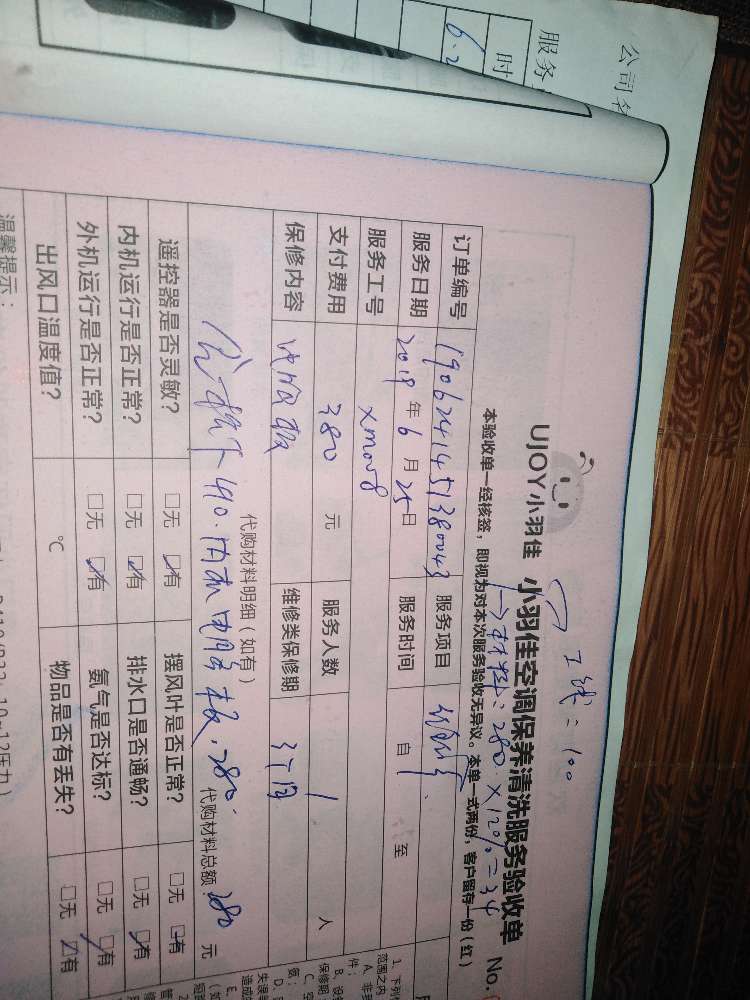 公司
服务
时
6.2
工钱：100
UJOY小羽佳 小羽佳空调保养清洗服务验收单 No.
材料：280×120%=34
本验收单一经核签，即视为对本次服务验收无异议。本单一式两份，客户留存一份（红）
订单编号 1906241451380043 服务项目
服务日期 2019 年 6 月 25 日 服务时间 自 至
服务工号 xm008
支付费用 380 元 服务人数 1 人
保修内容 电脑板 维修类保修期 3个月
代购材料明细（如有）
内机电脑板，280. 代购材料总额：280 元
遥控器是否灵敏？ □无 ☑有 摆风叶是否正常？ □无 ☑有
内机运行是否正常？ □无 ☑有 排水口是否通畅？ □无 ☑有
外机运行是否正常？ □无 ☑有 氨气是否达标？ □无 ☑有
出风口温度值？ ℃ 物品是否有丢失？ □无 ☑有
温馨提示：